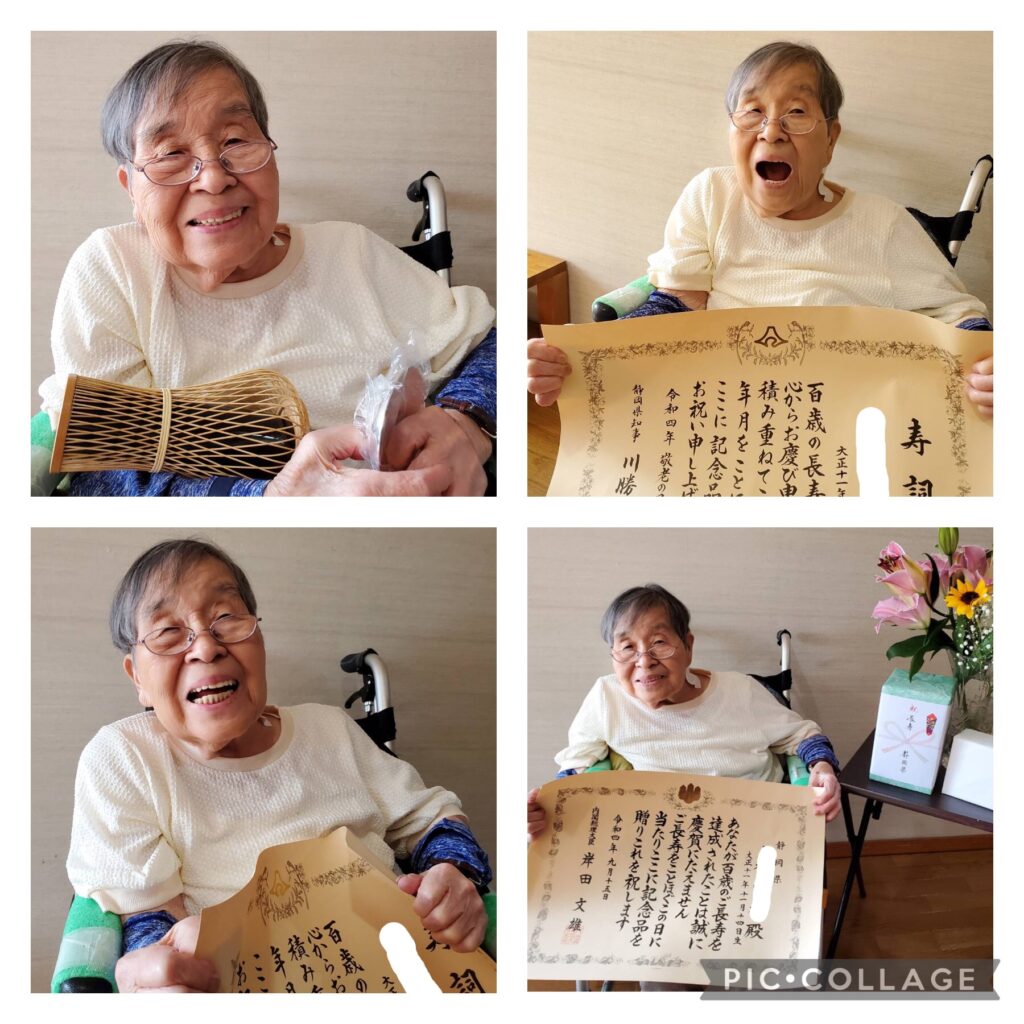 寿詞
大正十一年
百歳の長寿
心からお慶び申
積み重ねてこ
年月をこと
ここに記念品
お祝い申し上げ
令和四年 敬老の
静岡県知事 川勝
詞
大正
百歳の
心からお
積み
年月
ここ
お
静岡県
殿
大正十一年十一月十四日生
あなたが百歳のご長寿を
達成されたことは誠に
慶賀にたえません
ご長寿をことほぎこの日に
当たりここに記念品を
贈りこれを祝します
令和四年九月十五日
内閣総理大臣 岸田文雄
祝
長寿
静岡県
PIC•COLLAGE